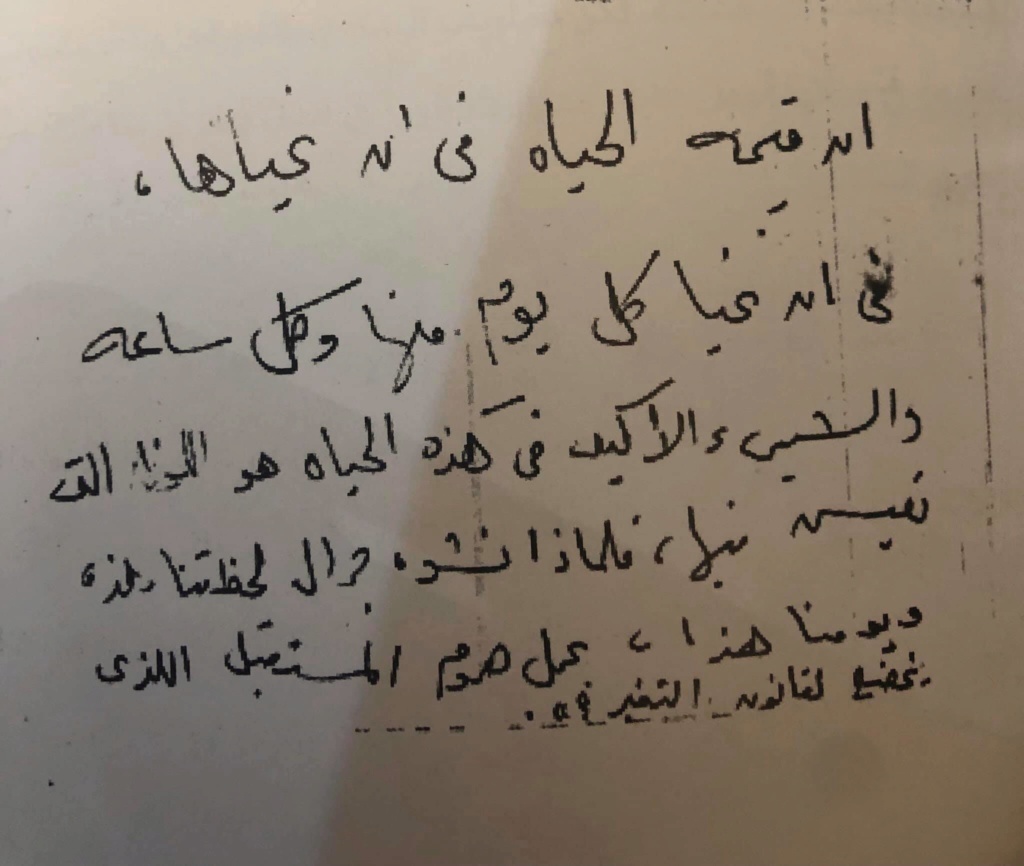 ان قيمه الحياه فى أن نحياها،
فى ان نحيا كل يوم منها وكل ساعه
والشيىء الأكيد فى هذه الحياه هو التى
نعيش فيها، فلماذا نشوه جمال لحظتنا هذه
ويومنا هذا، بحمل هموم المستقبل اللذى
يخضع لقانون التغير؟!!.